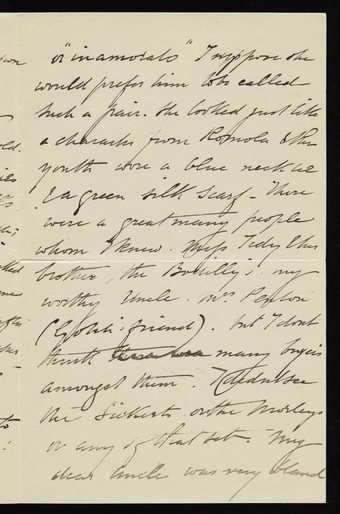 or "inamorato" I suppose she
would prefer him to be called
such a pair. She looked just like
a character from Romola & the
youth wore a blue neck tie
& a green silk scarf – There
were a great many people
whom I knew. Miss Tidy & her
brother, the my
worthy Uncle. Mrs
friend). but I dont
think many buyers
amongst them. I didnt see
the Sickerts or the Morleys
or any of that set. My
dear Uncle was very bland